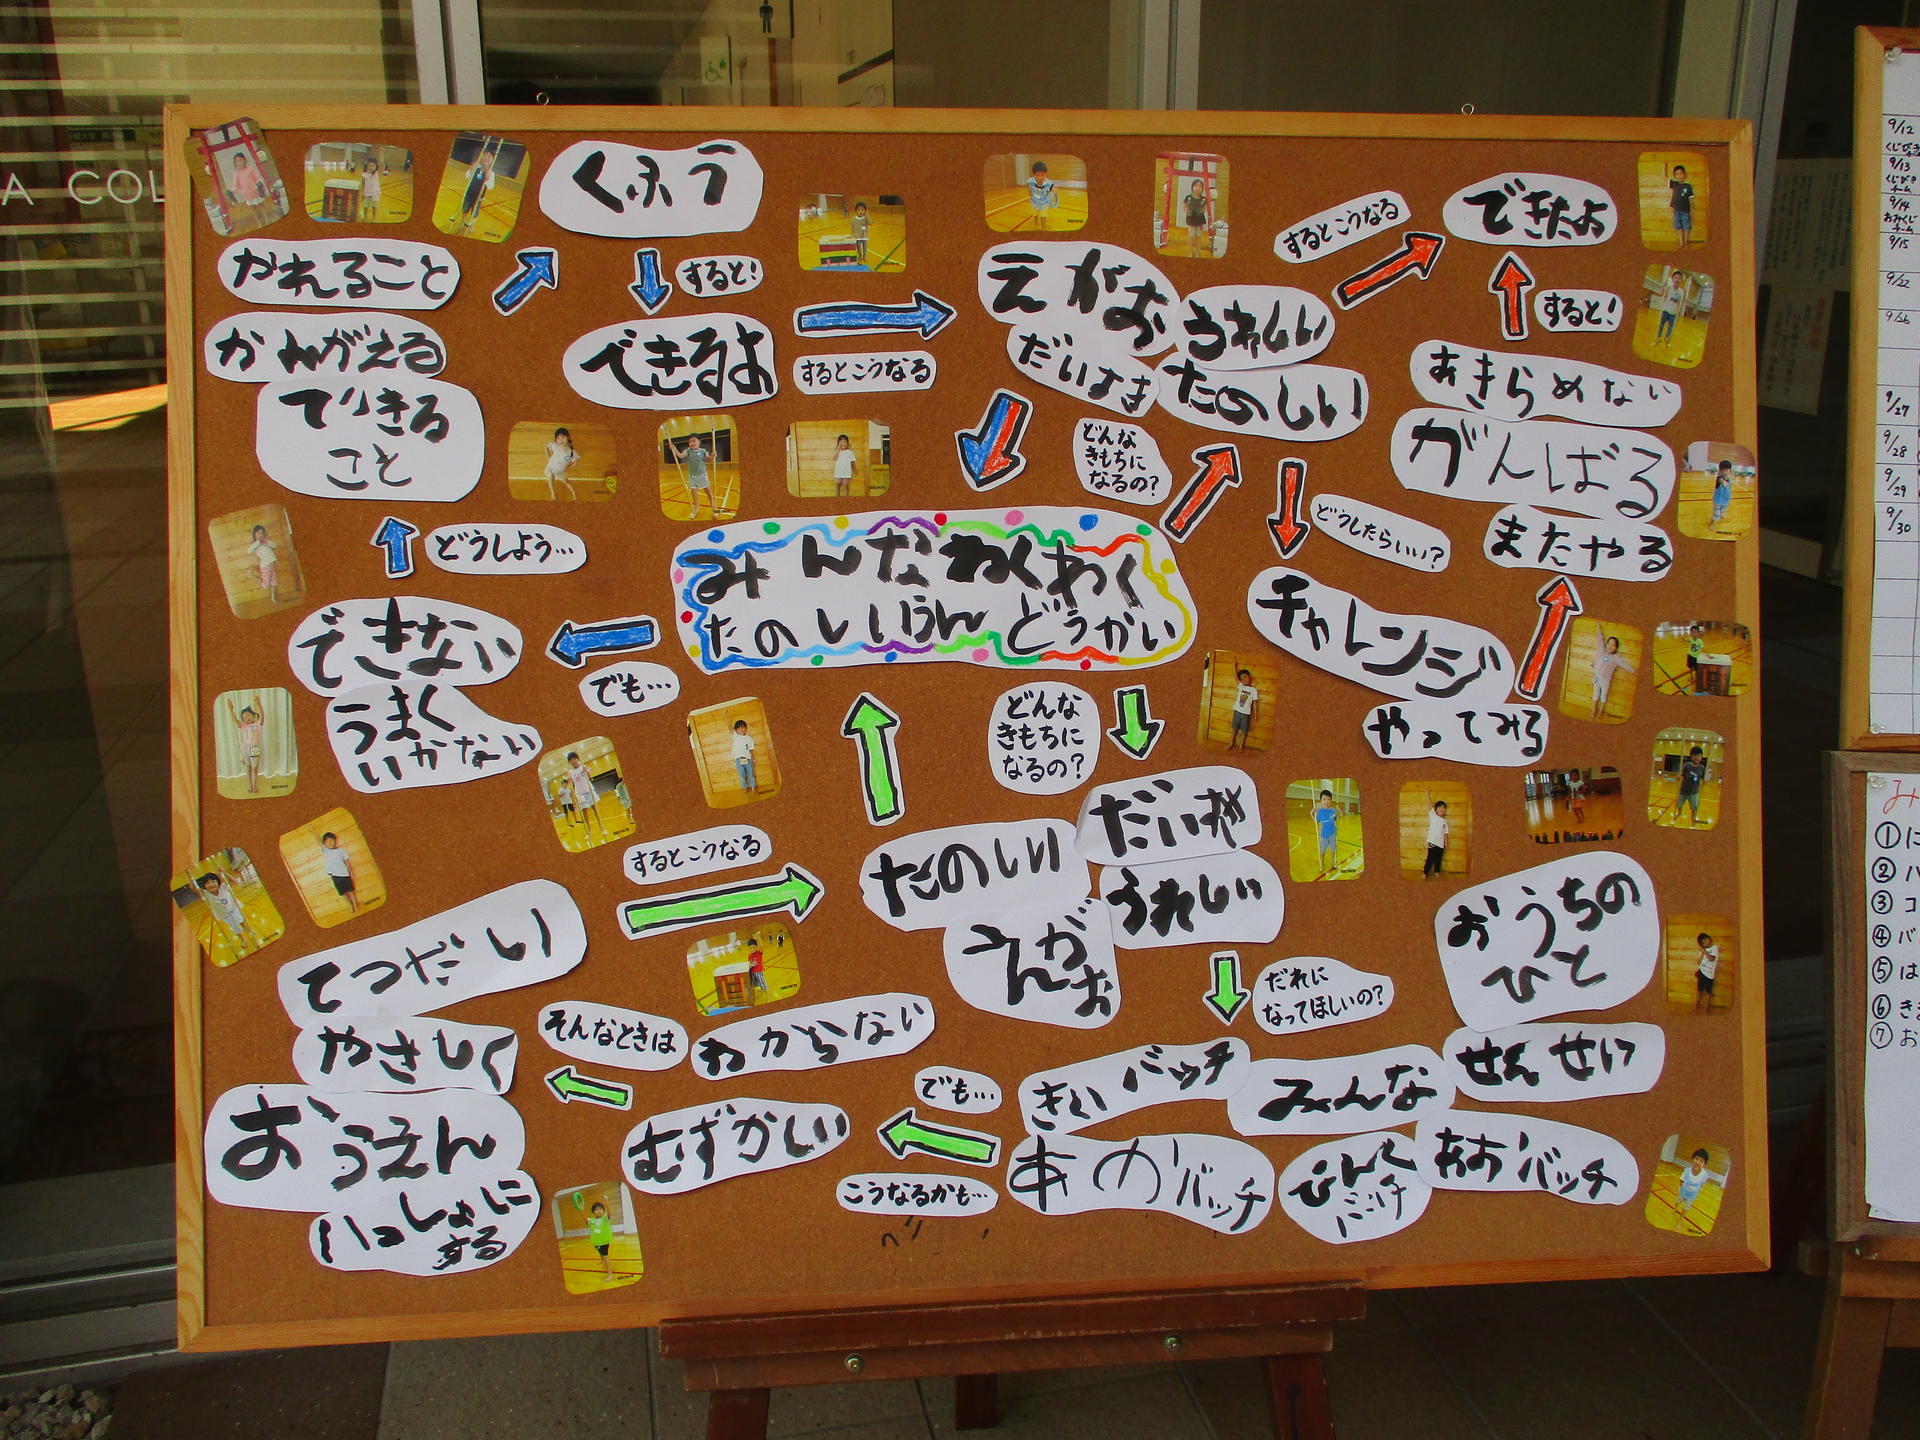 A COL
くふう
かれること
かんがえる
できる
こと
すると!
できるよ
するとこうなる
どうしよう…
できない
うまく
いかない
でも…
えがお
だいすき
うれしい
たのしい
するとこうなる
できたよ
すると!
あきらめない
がんばる
またやる
どんな
きもちに
なるの?
どうしたらいい?
チャレンジ
やってみる
みんなわくわく
たのしいうんどうかい
どんな
きもちに
なるの?
たのしい
だいすき
うれしい
えがお
するとこうなる
てつだい
やさしく
おうえん
いっしょに
する
そんなときは
わからない
むずかしい
でも…
こうなるかも…
だれに
なってほしいの?
おうちの
ひと
せんせい
みんな
きいバッチ
あかバッチ
ぴんく
バッチ
あおバッチ
9/12
くじびき
9/13
くじびき
チーム
9/14
おみくじ
チーム
9/15
9/22
9/26
9/27
9/28
9/29
9/30
み
①に
②ハ
③コ
④バ
⑤は
⑥き
⑦お